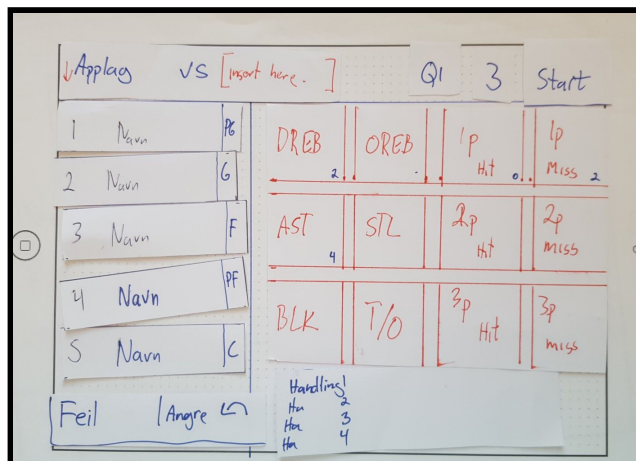 ↓Applag VS [insert here. ] Q1 3 Start
1 Navn PG
2 Navn G
3 Navn F
4 Navn PF
5 Navn C
DREB 2 OREB 1p Hit 0 1p Miss 2
AST 4 STL 2p Hit 2p miss
BLK T/O 3p Hit 3p miss
Feil Angre
Handling 1
Ha 2
Ha 3
Ha 4